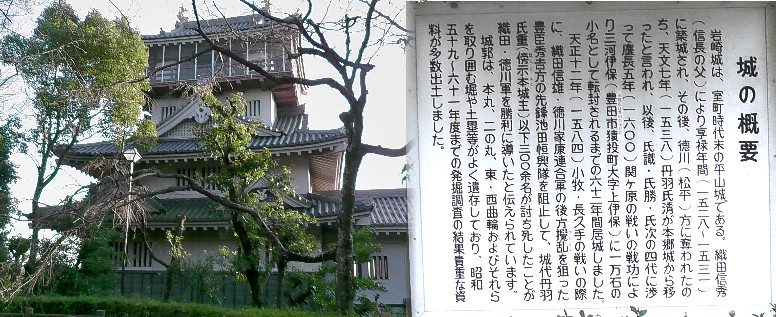 城の概要
岩崎城は、室町時代末の平山城である。織田信秀
(信長の父)により享禄年間(一五二八-一五三一)
に築城され、その後、徳川(松平)方に奪われたの
ち、天文七年(一五三八)丹羽氏清が本郷城から移
ったと言われ、以後、氏識・氏勝・氏次の四代に渉
って慶長五年(一六〇〇)関ヶ原の戦いの戦功によ
り三河伊保(豊田市猿投町大字上伊保)に一万石の
小名として転封されるまでの六十二年間居城しました。
天正十二年(一五八四)小牧・長久手の戦いの際
に、織田信雄・徳川家康連合軍の後方攪乱を狙った
豊臣秀吉方の先鋒池田恒興隊を阻止して、城代丹羽
氏重(傍示本城主)以下三〇〇余名が討ち死したことが
織田・徳川軍を勝利に導いたと伝えられています。
城郭は、本丸、二の丸、東・西曲輪およびそれら
を取り囲む堀や土塁等がよく遺存しており、昭和
五十九・六十一年度までの発掘調査の結果貴重な資
料が多数出土しました。